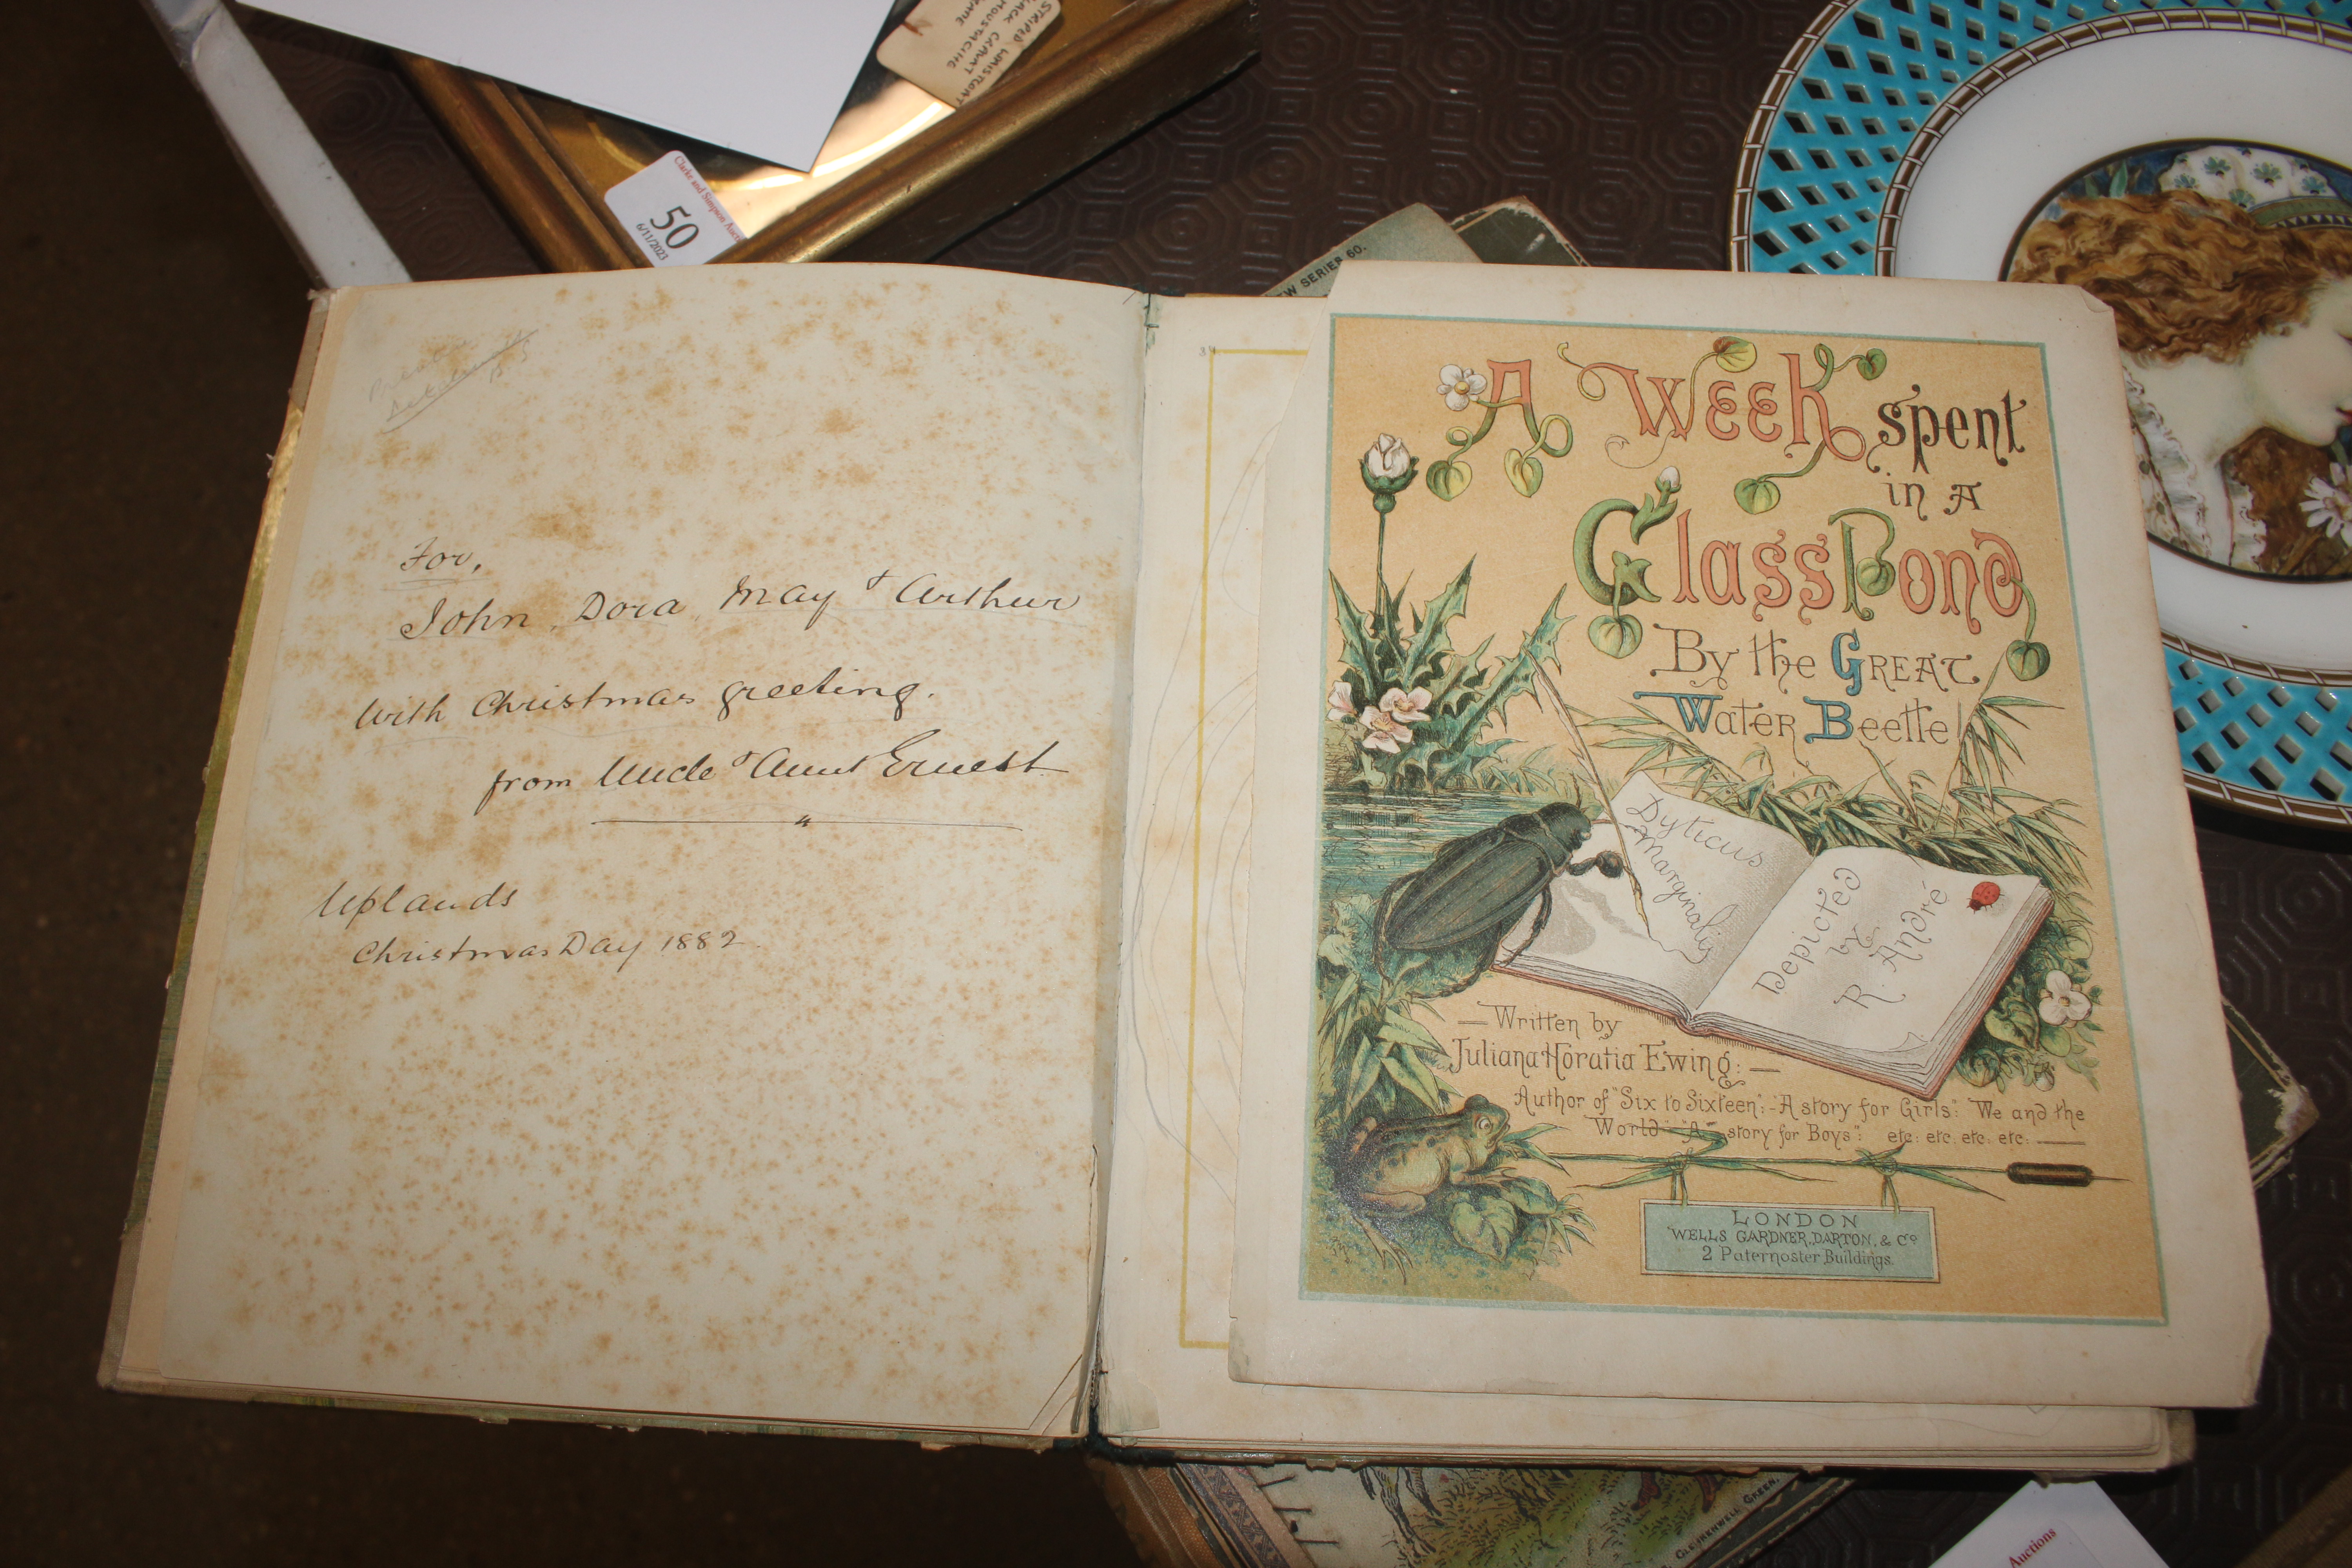 STRIPED WAISTCOAT
BLACK CRAVAT
MOUSTACHE
Clarke and Simpson
50
6/11/2023
SERIES 60.
For,
John, Dora, May & Arthur
With Christmas greeting.
from Uncle & Aunt Ernest
Uplands
Christmas Day 1882
A Week spent
in a
Glass Pond
By the Great
Water Beetle
Dyticus
Marginalis
Depicted
by
R. André
Written by
Juliana Horatia Ewing:
Author of "Six to Sixteen":-"A story for Girls": "We and the
World"-"A story for Boys": etc: etc. etc. etc:
LONDON
WELLS GARDNER, DARTON, & Co
2 Paternoster Buildings.
CLERKENWELL GREEN,
Auctions